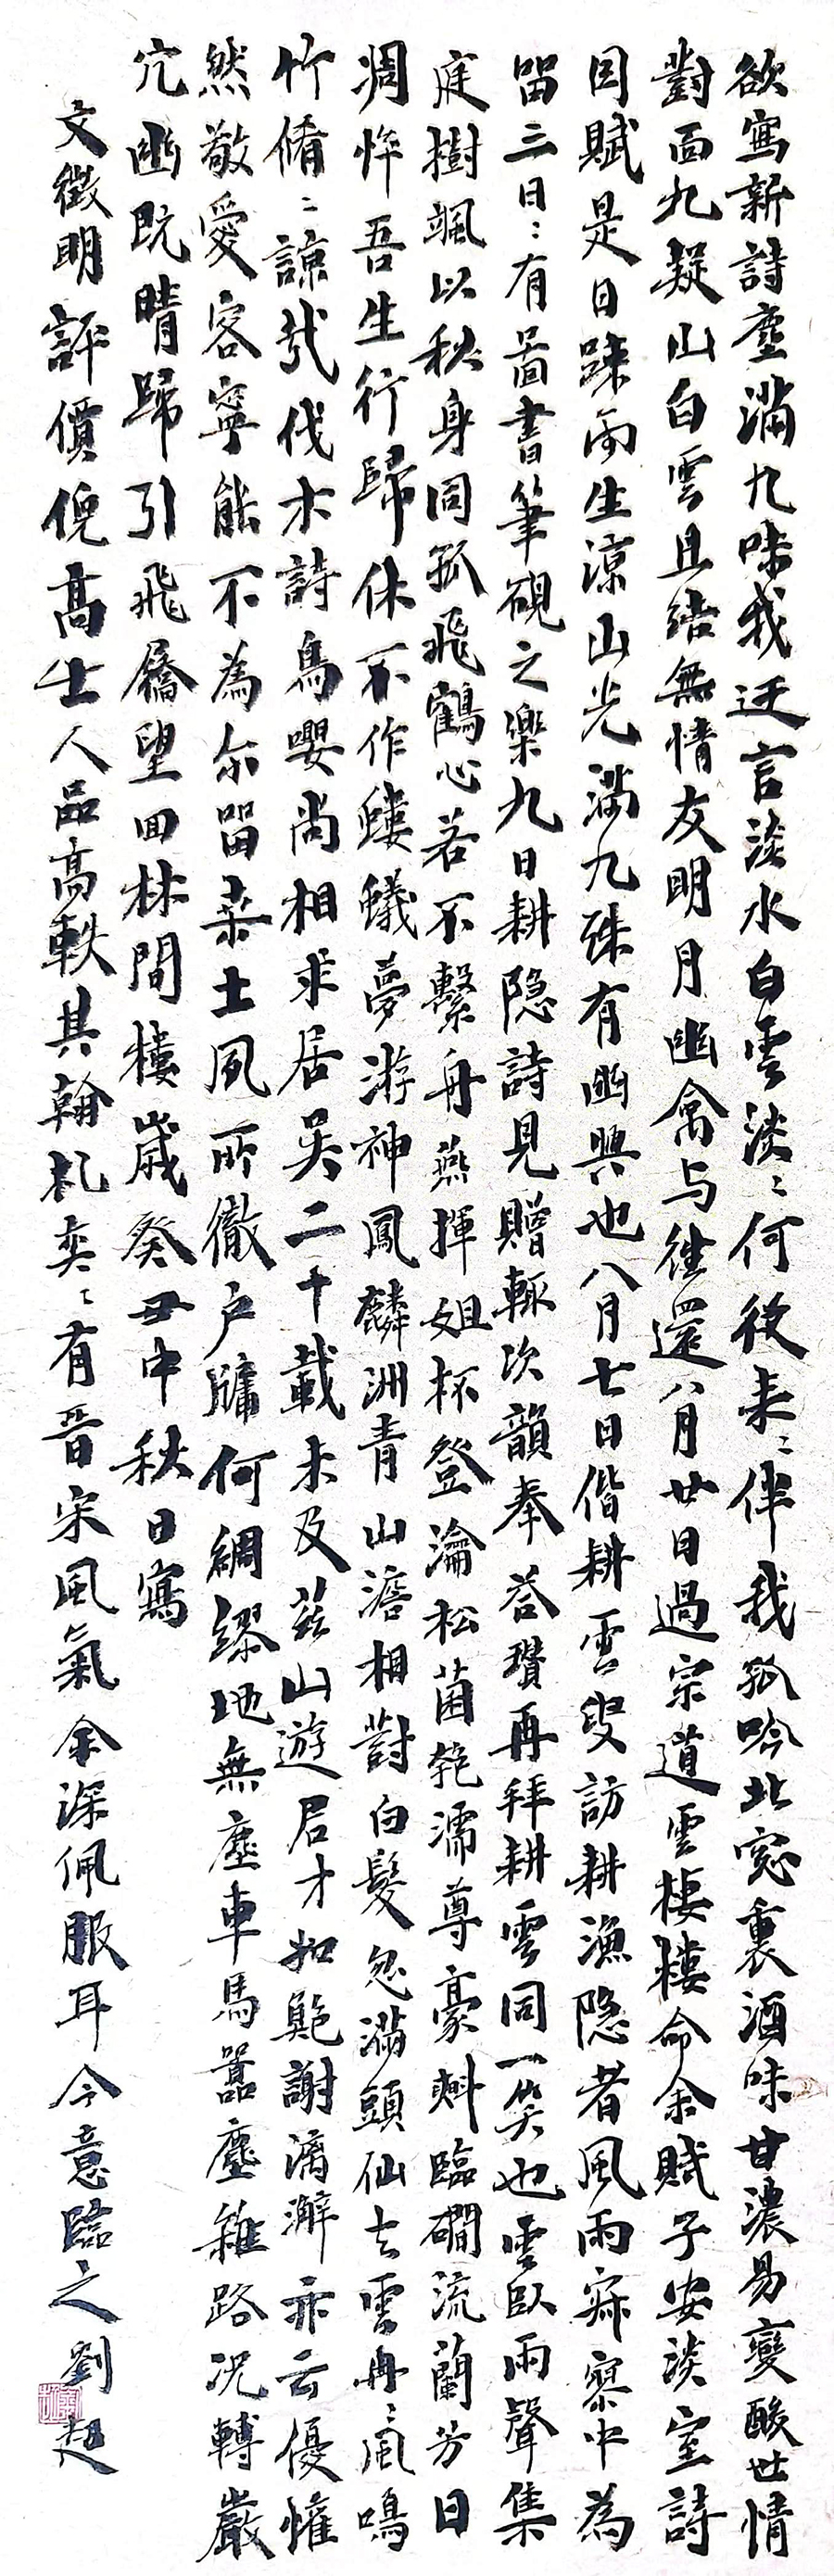 欲寫新詩塵滿九味我迂言淡水白雲淡〻何役来〻伴我孤吟北窓裏酒味甘濃易變酸世情
對面九疑山白雲且結無情友明月幽禽与往還八月廿日過宗道雲棲樓命余賦子安淡室詩
因賦是日疎雨生涼山光滿九殊有幽興也八月七日偕耕雲叟訪耕漁隐者風雨寂寥中為
留三日〻有啚書筆硯之樂九日耕隐詩見贈輒次韻奉荅瓚再拜耕雲同一笑也雲臥雨聲集
庭樹颯以秋身同孤飛鶴心若不繫舟燕揮姐杯登瀹松菌乾濡尊豪𣂏臨磵流蘭芳日
凋悴吾生行歸休不作螻蟻夢游神鳳麟洲青山澹相對白髮忽滿頭仙去雲冉〻風鳴
竹脩〻諒哉伐木詩鳥嚶尚相求居吳二十載未及茲山遊君才如鮑謝漓澥亦云優懽
然敬愛客寧能不為尓留桒土夙所徹户牖何綢繆地無塵車馬囂塵雜路况轉巖
宂幽既晴歸引飛屩望田林間樓歲癸丑中秋日寫
文徵明評價倪高士人品高軼其翰札奕〻有晋宋風氣余深佩服耳今意臨之劉超